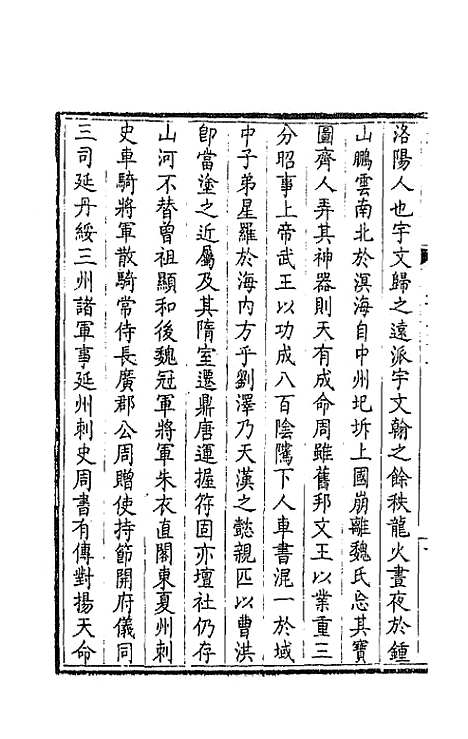 洛陽人也宇文歸之遠派宇文翰之餘秩龍火晝夜於鍾
山鵬雲南北於溟海自中州圮坼上國崩離魏氏忘其寶
圖齊人弄其神器則天有成命周雖舊邦文王以業重三
分昭事上帝武王以功成八百陰隲下人車書混一於域
中子弟星羅於海内方乎劉澤乃天漢之懿親匹以曹洪
卽當塗之近屬及其隋室遷鼎唐運握符固亦壇社仍存
山河不替曾祖顯和後魏冠軍將軍朱衣直閣東夏州刺
史車騎將軍散騎常侍長廣郡公周贈使持節開府儀同
三司延丹綏三州諸軍事延州刺史周書有傳對揚天命